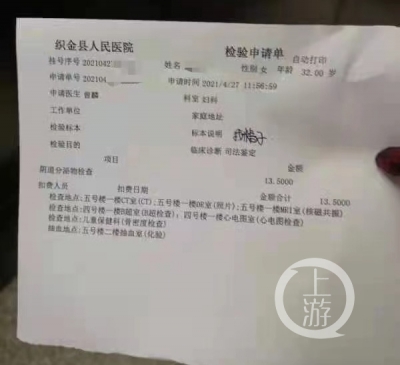 织金县人民医院 检验申请单 自动打印
挂号序号 2021042 姓名 性别 女 年龄 32.00 岁
申请单号 202104 申请时间 2021/4/27 11:56:59
申请医生 曾麟 科室 妇科
工作单位 家庭地址
检验标本 标本说明
检验目的 临床诊断 司法鉴定
项目 金额
阴道分泌物检查 13.5000
扣费人员 扣费日期 金额合计 13.5000
检查地点:五号楼一楼CT室(CT);五号楼一楼DR室(照片);五号楼一楼MRI室(核磁共振)
检查地点:四号楼一楼B超室(B超检查);四号楼一楼心电图室(心电图检查)
检查地点:儿童保健科(骨密度检查)
抽血地点:五号楼二楼抽血室(化验)
上游